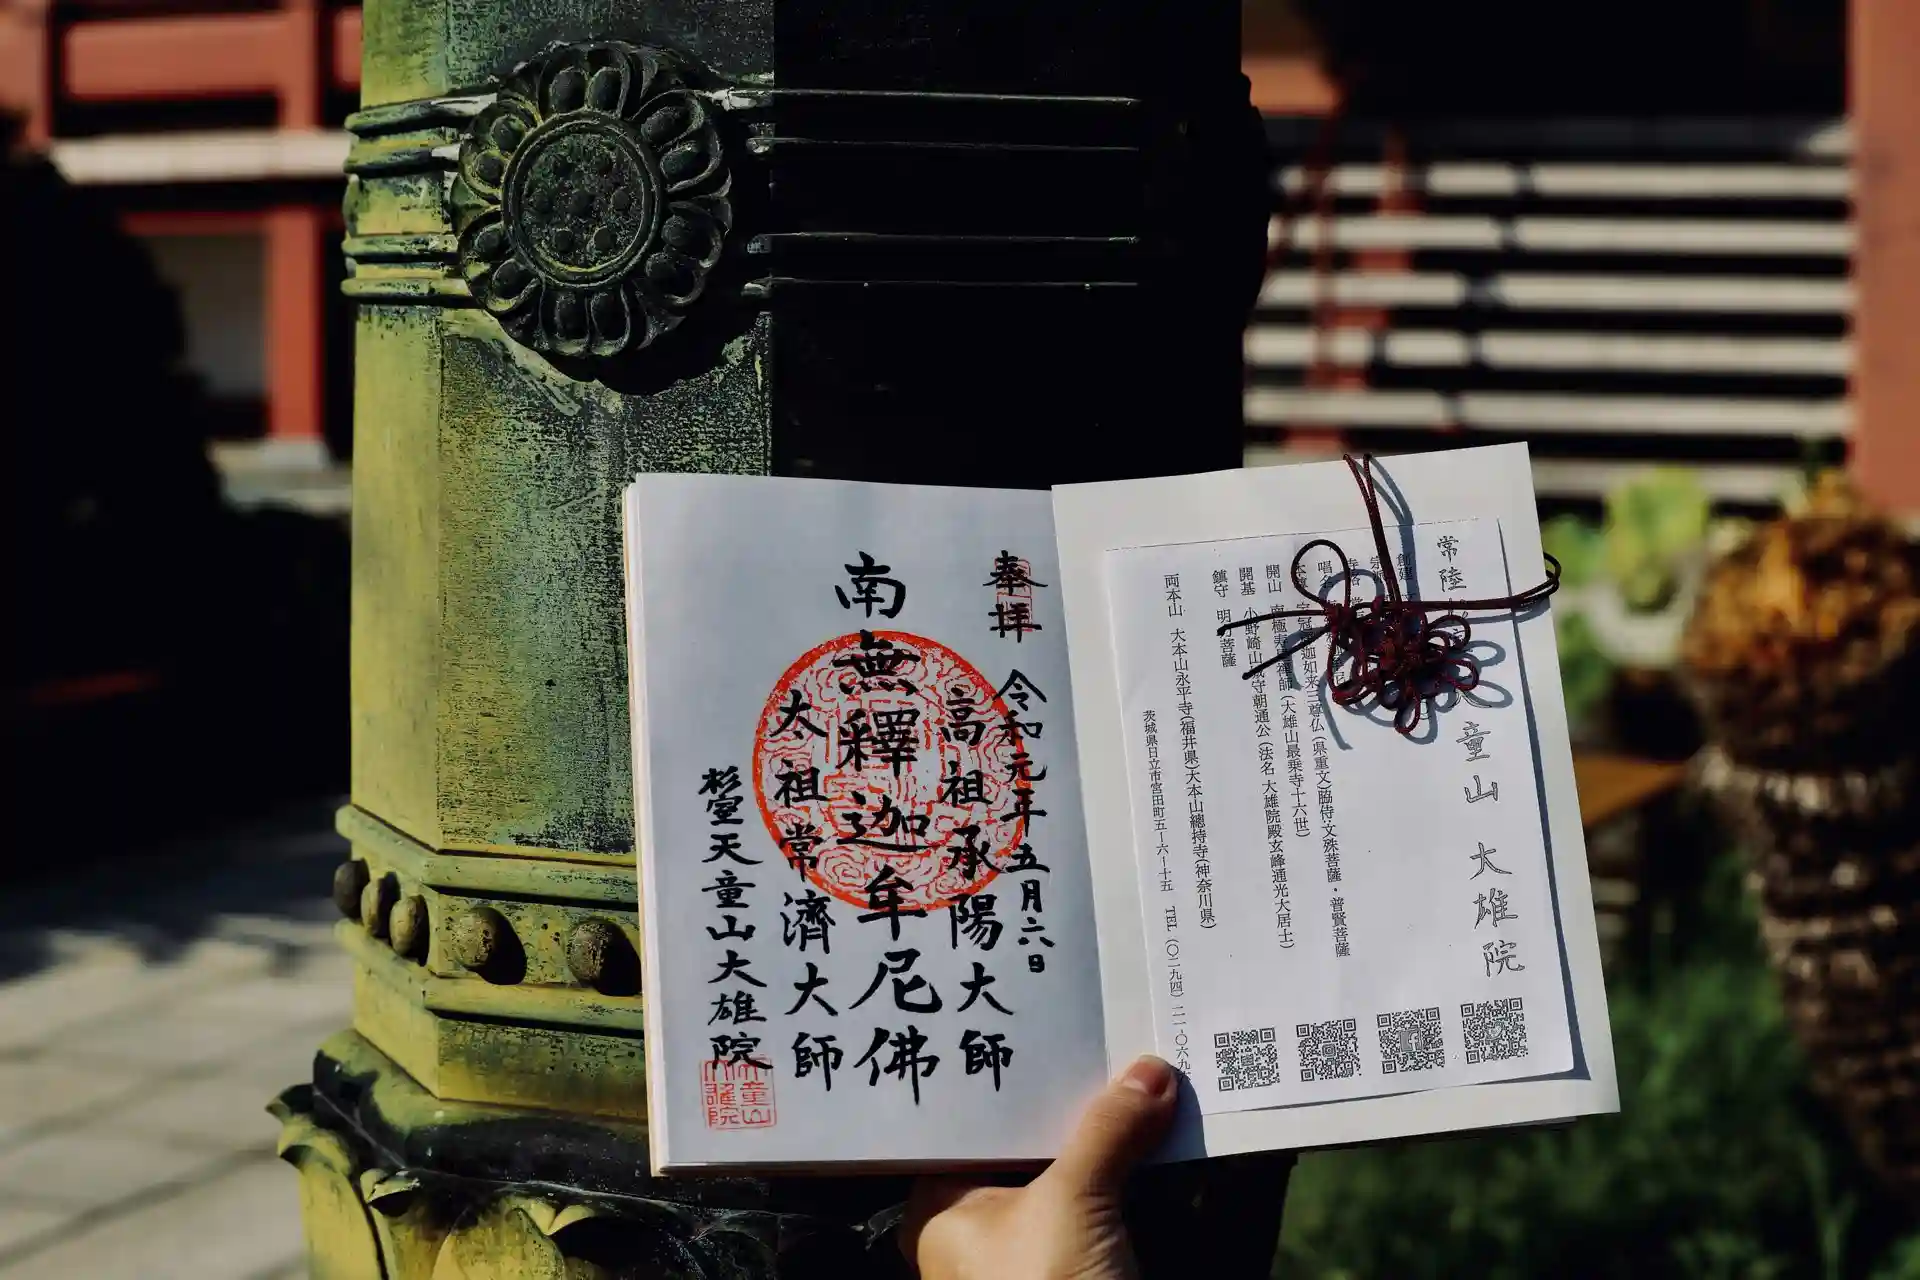 常陸 童山 大雄院
創建
宗派
寺格
唱名
迦如来三尊仏(県重文)脇侍・文殊菩薩・普賢菩薩
開山 南極寿 禅師(大雄山最乗寺十六世)
開基 小野崎山城守朝通公(法名 大雄院殿玄峰通光大居士)
鎮守 明 菩薩
両本山 大本山永平寺(福井県)大本山總持寺(神奈川県)
茨城県日立市宮田町五ー六ー十五 TEL(〇二九四)二一ー〇六九
奉拝 令和元年五月六日
高祖承陽大師
南無釋迦牟尼佛
太祖常濟大師
杉室天童山大雄院
天童山
大雄院